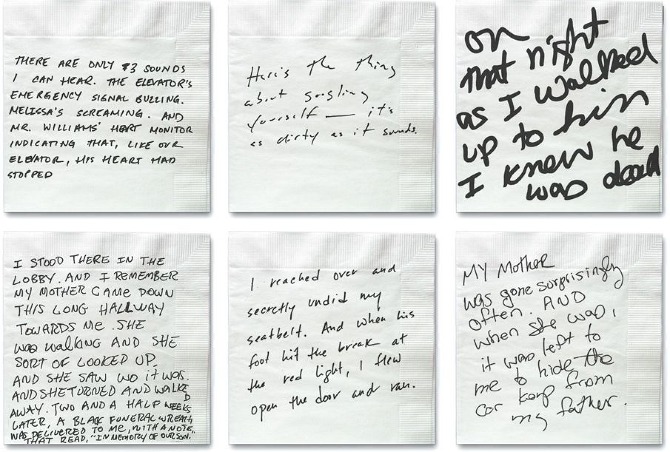 THERE ARE ONLY 3 SOUNDS
I CAN HEAR. THE ELEVATOR'S
EMERGENCY SIGNAL BUZZING.
MELISSA'S SCREAMING. AND
MR. WILLIAMS' HEART MONITOR
INDICATING THAT, LIKE OUR
ELEVATOR, HIS HEART HAD
STOPPED
Here's the thing
about googling
yourself — it's
as dirty as it sounds.
on
that night
as I walked
up to him
I knew he
was dead
I STOOD THERE IN THE
LOBBY. AND I REMEMBER
MY MOTHER CAME DOWN
THIS LONG HALLWAY
TOWARDS ME. SHE
WAS WALKING AND SHE
SORT OF LOOKED UP.
AND SHE SAW WO IT WAS.
AND SHE TURNED AND WALKED
AWAY. TWO AND A HALF WEEKS
LATER, A BLACK FUNERAL WREATH
WAS DELIVERED TO ME, WITH A NOTE
THAT READ, "IN MEMORY OF OUR SON."
I reached over and
secretly undid my
seatbelt. And when his
foot hit the break at
the red light, I flew
open the door and ran.
MY Mother
was gone surprisingly
often. AND
when she was,
it was left to
me to hide the
car keep from
my father.